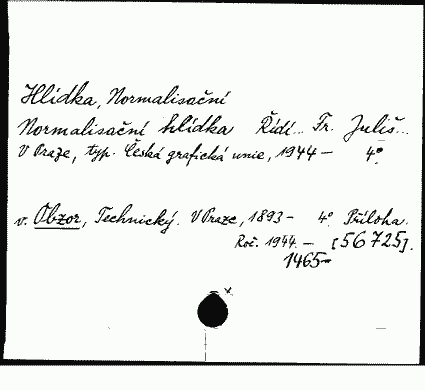 Hlídka, Normalisační
Normalisační hlídka Řídí... Fr. Juliš...
V Praze, typ. Česká grafická unie, 1944 — 4°.
v. Obzor, Technický. V Praze, 1893 — 4°. Příloha.
Roč. 1944. — [56725].
1465—
x